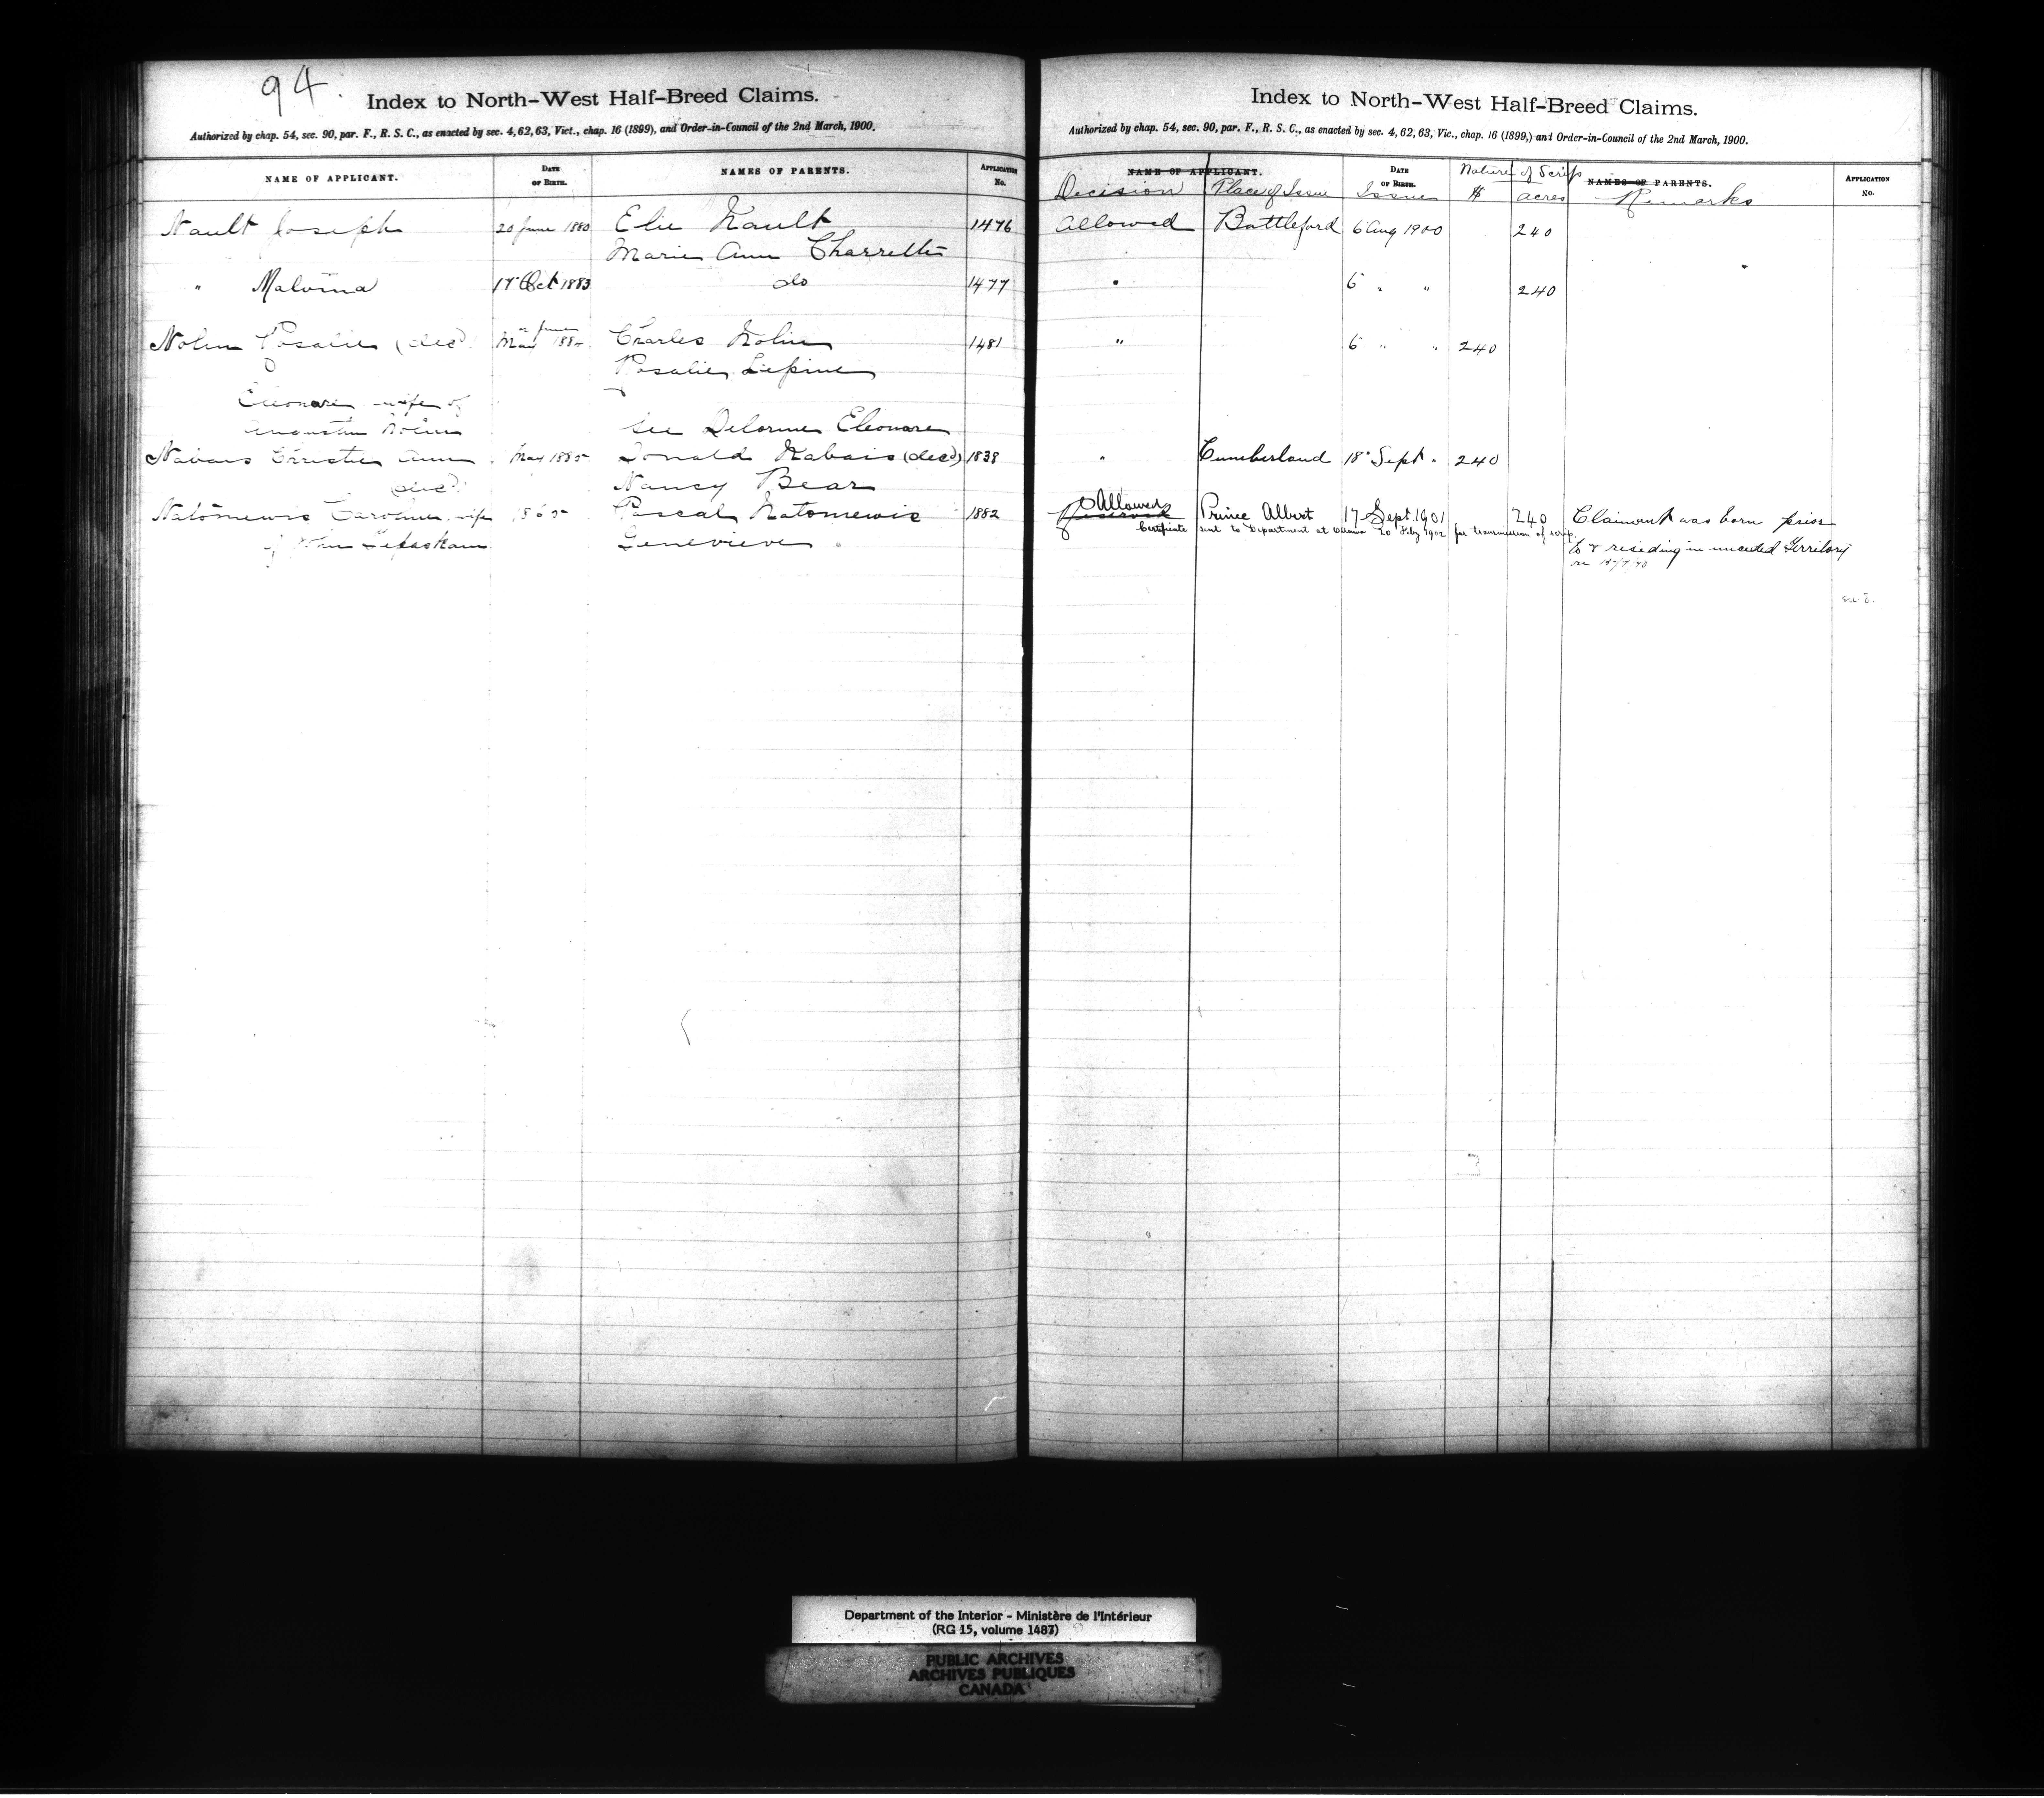 94.
Index to North-West Half-Breed Claims.
Authorized by chap. 54, sec. 90, par. F., R. S. C., as enacted by sec. 4, 62, 63, Vict., chap. 16 (1899), and Order-in-Council of the 2nd March, 1900.
NAME OF APPLICANT. DATE OF BIRTH. NAMES OF PARENTS. APPLICATION No.
Nault Joseph 20 June 1880 Elie Nault 1476
Marie Ann Charrette
" Malvina 17 Oct 1883 do 1477
Nolin Rosalie (decd) Charles Nolin 1481
Rosalie Lepine
Eleonare wife of
Augustin Nolin See Delorme Eleonare
Nabais Christie Ann May 1885 Donald Nabais (decd) 1838
(decd) Nancy Bear
Natomewis Caroline, wife 1865 Pascal Natomewis 1882
of John Genevieve
Index to North-West Half-Breed Claims.
Authorized by chap. 54, sec. 90, par. F., R. S. C., as enacted by sec. 4, 62, 63, Vic., chap. 16 (1899,) and Order-in-Council of the 2nd March, 1900.
NAME OF APPLICANT. DATE OF BIRTH. Nature of Scrip NAMES OF PARENTS. APPLICATION No.
Decision Place of Issue Issue $ acres Remarks
Allowed Battleford 6 Aug 1900 240
" 6 " " 240
" 6 " " 240
" Cumberland 18 Sept " 240
Allowed
Reserved Prince Albert 17 Sept. 1901 240 Claimant was born prior
Certificate sent to Department at Ottawa 20 Feby 1902 for transmission of scrip.
to & residing in unceded Territory
on 15/7/70
Department of the Interior - Ministère de l'Intérieur
(RG 15, volume 1487)
PUBLIC ARCHIVES
ARCHIVES PUBLIQUES
CANADA